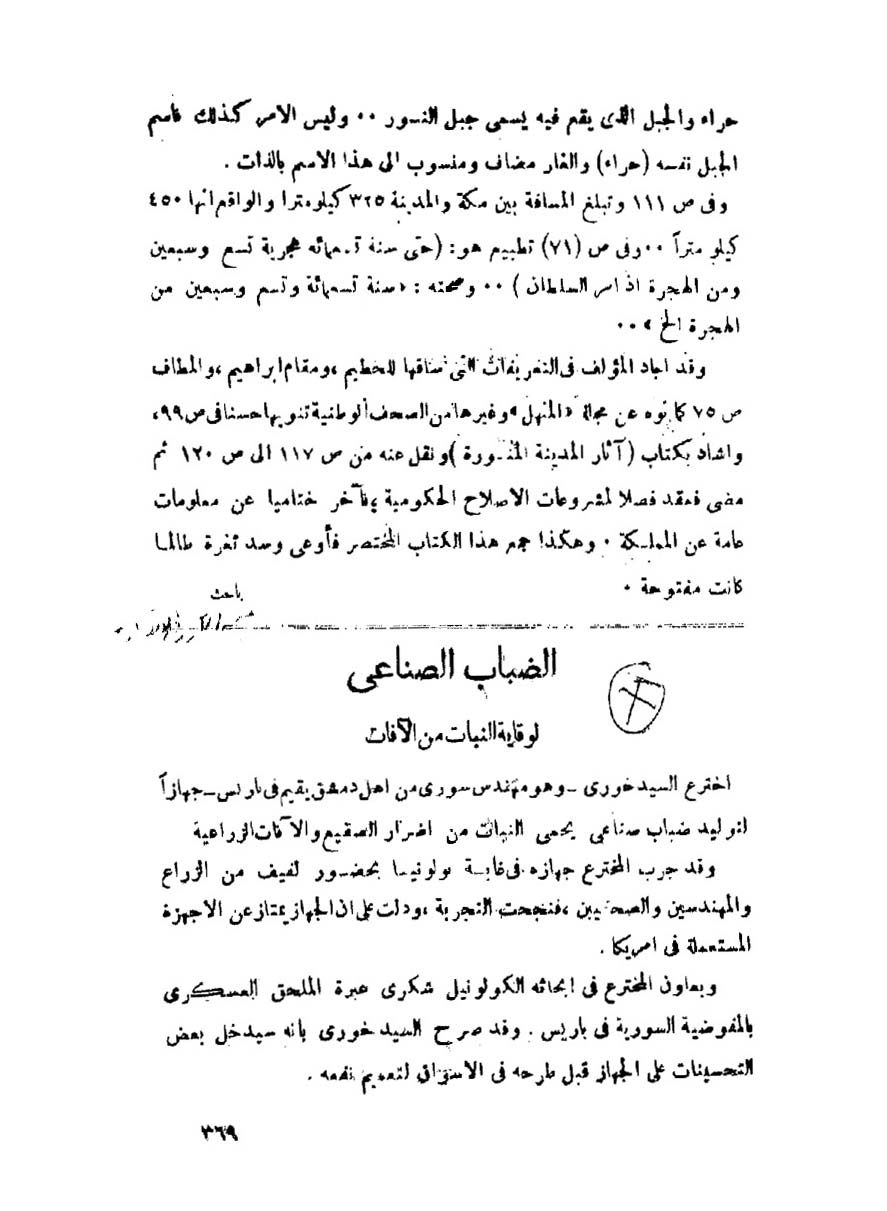 حراء والجبل الذى يقع فيه يسمى جبل النسور ٠٠ وليس الامر كذلك فاسم
الجبل نفسه (حراء) والغار مضاف ومنسوب الى هذا الاسم بالذات .
وفى ص ١١١ وتبلغ المسافة بين مكة والمدينة ٣٢٥ كيلومترا والواقع انها ٤٥٠
كيلو متراً ٠٠ وفى ص (٧١) تطبيع هو: (حتى سنة تسعمائه هجرية تسع وسبعين
ومن الهجرة اذ امر السلطان ) ٠٠ وصحته : «سنة تسعمائة وتسع وسبعين من
الهجرة الخ» ٠٠
وقد اجاد المؤلف فى التعريفات التى ساقها للحطيم ،ومقام ابراهيم ،والمطاف
ص ٧٥ كما نوه عن مجلة «المنهل» وغيرها من الصحف الوطنية تنويها حسنا فى ص ٩٩،
واشاد بكتاب (آثار المدينة المنورة )ونقل عنه من ص ١١٧ الى ص ١٢٠ ثم
مضى فعقد فصلا لمشروعات الاصلاح الحكومية ،فآخر ختاميا عن معلومات
عامة عن المملكة ٠ وهكذا جمع هذا الكتاب المختصر فأوعى وسد ثغرة طالما
كانت مفتوحة ٠
باحث
الضباب الصناعى
لوقاية النبات من الآفات
اخترع السيد خورى ـ وهو مهندس سورى من اهل دمشق يقيم فى باريس ـ جهازاً
لتوليد ضباب صناعى يحمى النبات من اضرار الصقيع والآفات الزراعية
وقد جرب المخترع جهازه فى غابة بولونيا بحضور لفيف من الزراع
والمهندسين والصحفيين ،فنجحت التجربة ،ودلت على ان الجهاز يمتاز عن الاجهزة
المستعملة فى امريكا .
ويعاون المخترع فى ابحاثه الكولونيل شكرى عبرة الملحق العسكرى
بالمفوضية السورية فى باريس . وقد صرح السيد خورى بانه سيدخل بعض
التحسينات على الجهاز قبل طرحه فى الاسواق لتعميم نفعه .
٣٦٩